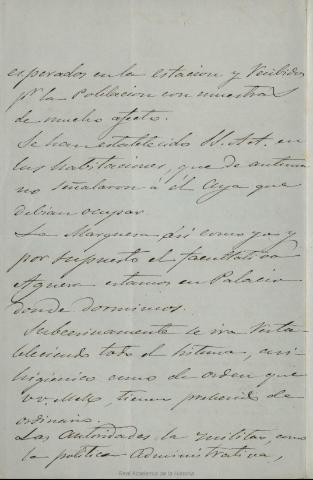 esperados en la estacion y recibidos
pr. la Poblacion con muestras
de mucho afecto.
Se han establecido SS. AA. en
las habitaciones, que de antema
no señalaron á el Aya que
debian ocupar.
La Marquesa, asi como yo y
por supuesto el facultativo
Aguera estamos en Palacio
donde dormimos.
Subcesivamente se ira resta
bleciendo todo el sistema,
higienico como de orden que
VV. MM., tienen prebenido de
ordinario.
Las autoridades la militar, como
la politica-administrativa,
Real Academia de la Historia